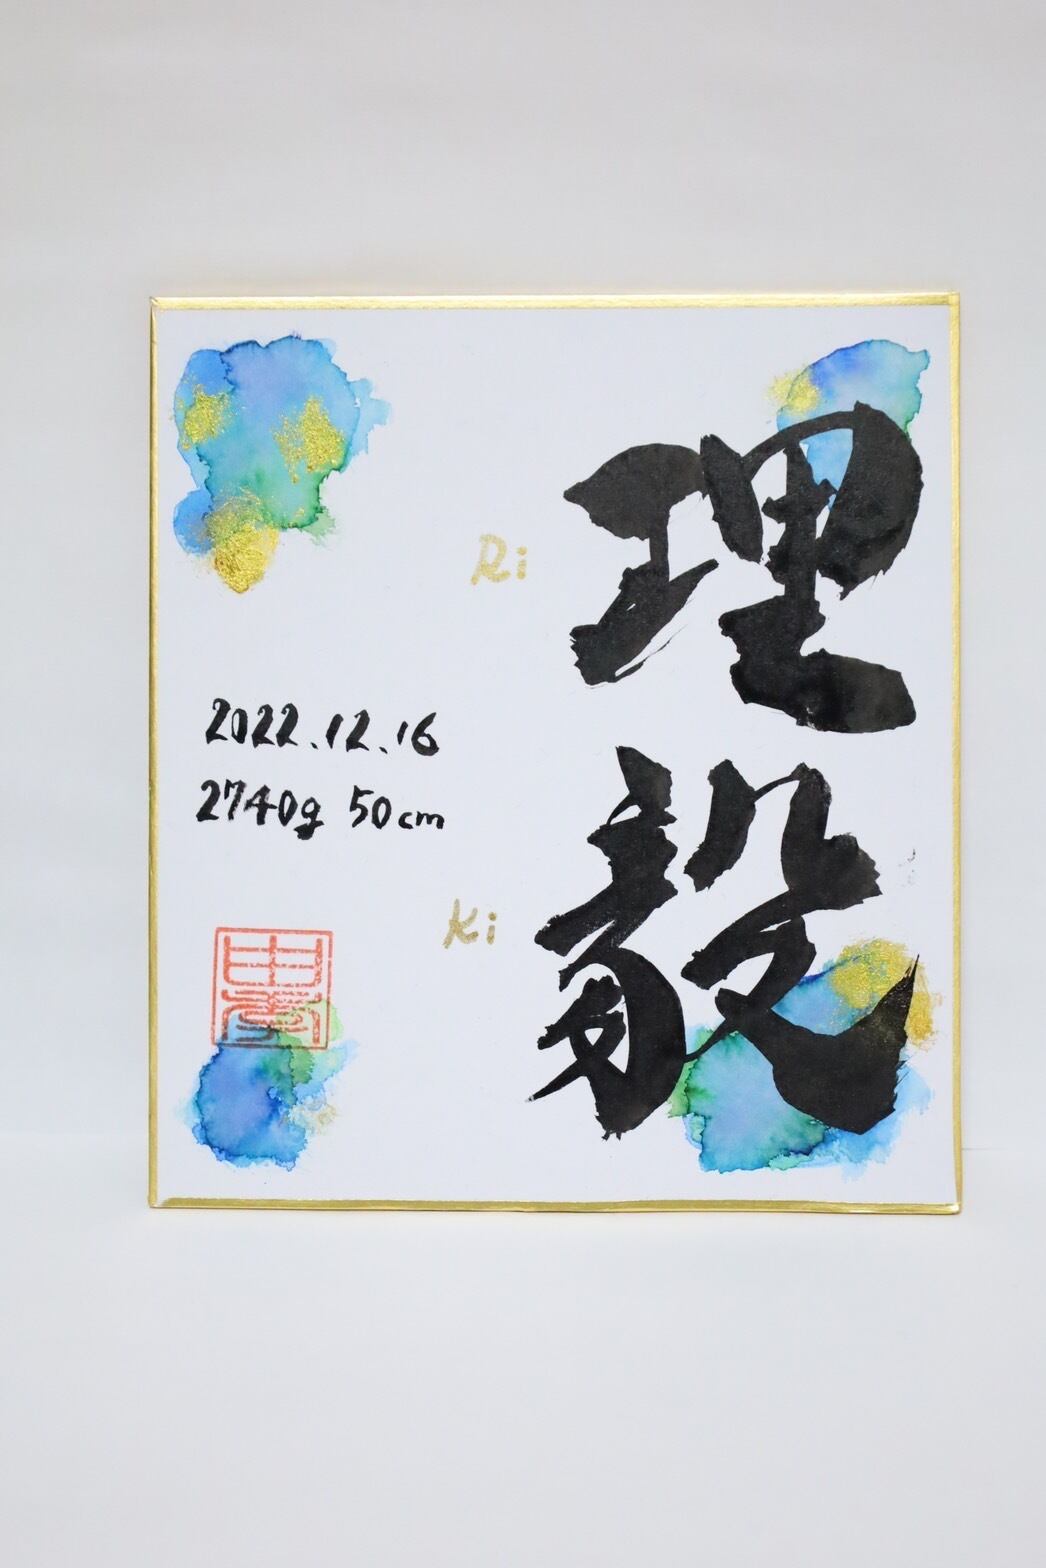 理毅
Ri
Ki
2022.12.16
2740g 50cm